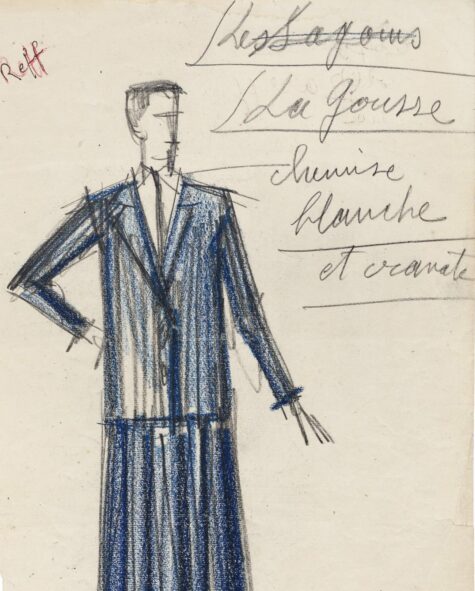 Reff
Les
La Gousse
chemise
blanche
et cravate